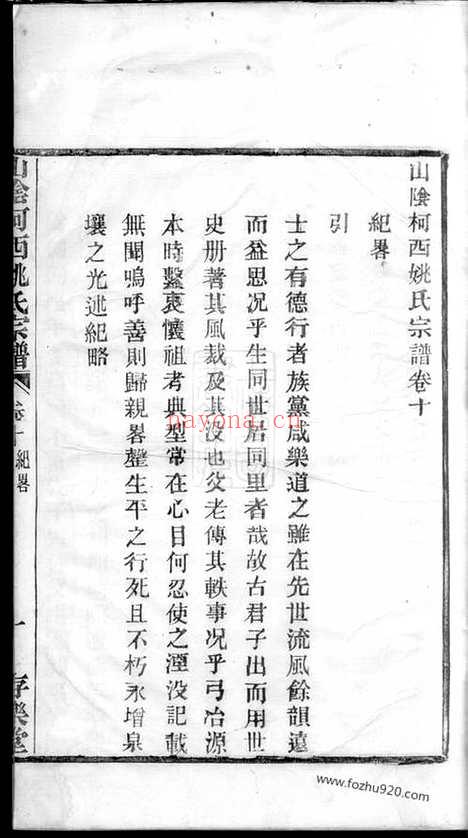 山陰柯西姚氏宗譜卷十
紀畧
引
士之有德行者族黨咸樂道之雖在先世流風餘韻遠
而益思况乎生同世居同里者哉故古君子出而用世
史册著其風裁及其没也父老傳其軼事况乎弓冶源
本時繫哀懷祖考典型常在心目何忍使之湮没記載
無聞嗚呼善則歸親畧墍生平之行死且不朽永增泉
壤之光述紀略
山陰柯西姚氏宗譜
卷十 紀畧
一
存樂堂
nayona.cn
www.fozhu920.com